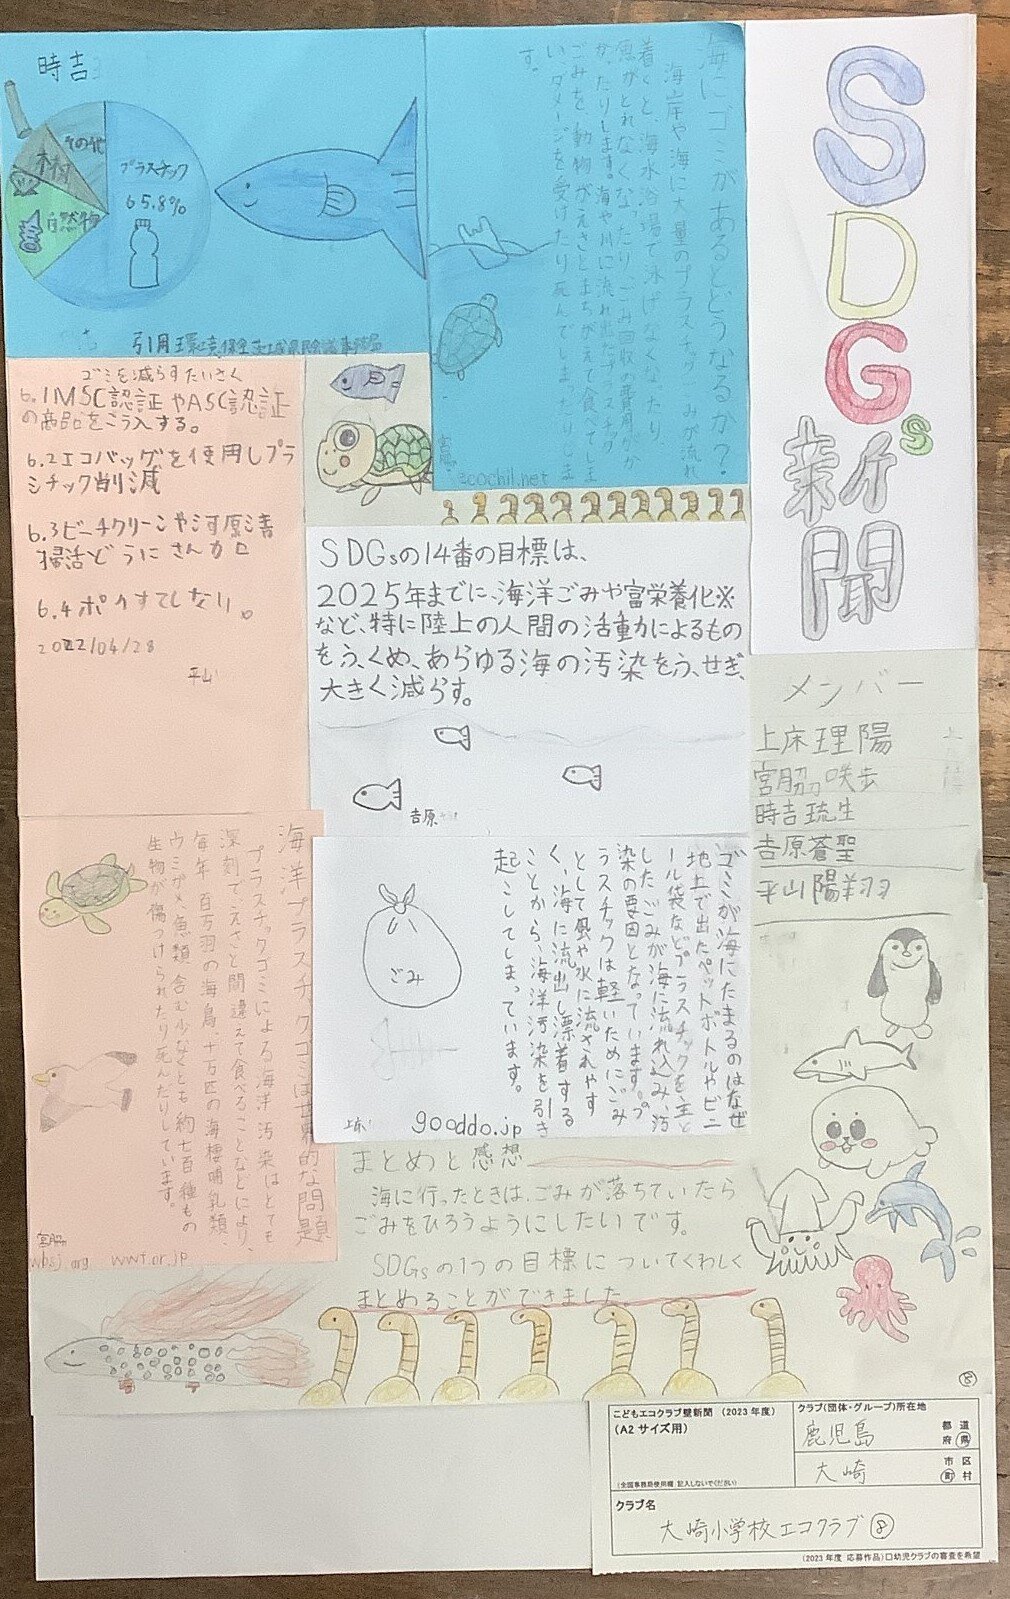 SDGs
新聞
海にゴミがあるとどうなるか?
海岸や海に大量のプラスチック みが流れ
着くと、海水浴場で泳げなくなったり
魚がとれなくなったり、ごみ 収の費用がか
かったりします。海や川に流れ出 スチック
ごみを、動物がえさとまちがえて食べてしま
い、ダメージを受けたり死んでしまったりしま
す。
宮脇
ecochil.net
時吉
プラスチック
65.8%
その他
木材
自然物
引用
ゴミを減らすたいさく
6.1MSC認証やASC認証
の商品をこう入する。
6.2エコバッグを使用しプラ
シチック削減
6.3ビーチクリーンや河原清
掃活どうにさんカロ
6.4ポイすてしない。
2022/04/28
平山
SDGsの14番の目標は、
2025年までに、海洋ごみや富栄養化※
など、特に陸上の人間の活動によるもの
をふくめ、あらゆる海の汚染をふせぎ、
大きく減らす。
吉原
メンバー
上床理陽
宮脇咲歩
時吉琉生
吉原蒼聖
平山陽翔
ゴミが海にたまるのはなぜ
地上で出たペットボトルやビニ
ール袋などプラスチックを主と
したごみが海に流れ込み、汚
染の要因となっています。プ
ラスチックは軽いためにごみ
として風や水に流されやす
く、海に流出し漂着する
ことから、海洋汚染を引き
起こしてしまっています。
ごみ
上床
gooddo.jp
海洋プラスチックゴミは世界的な問題
プラスチックゴミによる海洋汚染はとても
深刻でえさと間違えて食べることなどにより、
毎年百万羽の海鳥十万匹の海棲哺乳類、
ウミガメ、魚類含む少なくとも約七百種もの
生物が傷つけられたり死んだりしています。
宮脇
wbsj org wwf.or.jp
まとめと感想
海に行ったときは、ごみが落ちていたら
ごみをひろうようにしたいです。
SDGsの1つの目標についてくわしく
まとめることができました。
8
こどもエコクラブ壁新聞 (2023年度)
(A2サイズ用)
(全国事務局使用欄 記入しないでください)
クラブ(団体・グループ)所在地
鹿児島
都道
府県
大崎
市区
町村
クラブ名
大崎小学校エコクラブ⑧
(2023年度 応募作品)口幼児クラブの審査を希望